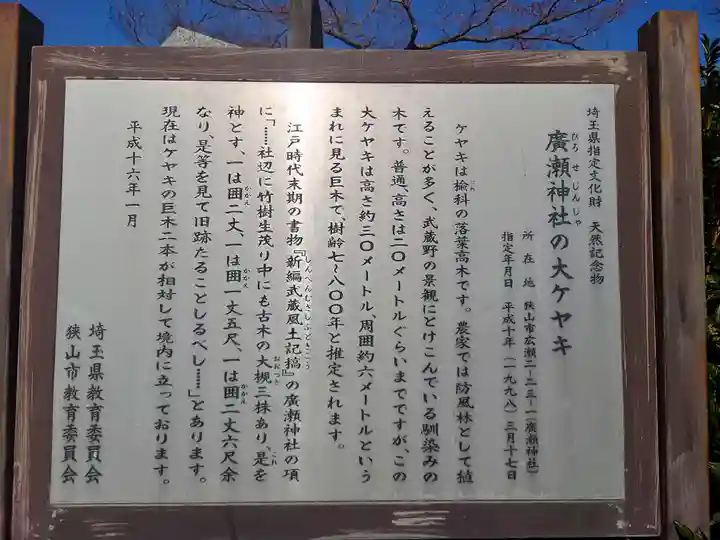 埼玉県指定文化財 天然記念物
廣瀬神社の大ケヤキ
ひろせじんじゃ
所在地 狭山市広瀬二-二三-一(廣瀬神社)
指定年月日 平成十年(一九九八)三月十七日
ケヤキは楡科の落葉高木です。農家では防風林として植
にれ
えることが多く、武蔵野の景観にとけこんでいる馴染みの
木です。普通、高さは二〇メートルぐらいまでですが、この
大ケヤキは高さ約三〇メートル、周囲約六メートルという
まれに見る巨木で、樹齢七~八〇〇年と推定されます。
江戸時代末期の書物『新編武蔵風土記稿』の廣瀬神社の項
しんぺんむさしふどきこう
に「……社辺に竹樹生茂り中にも古木の大槻三株あり、是を
おおつき
これ
神とす、一は囲二丈、一は囲一丈五尺、一は囲二丈六尺余
かかえ
かかえ
かかえ
なり、是等を見て旧跡たることしるべし……」とあります。
現在はケヤキの巨木二本が相対して境内に立っております。
平成十六年一月
埼玉県教育委員会
狭山市教育委員会